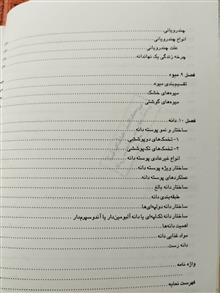 چندرویانی
انواع چندرویانی
علت چندرویانی
چرخه زندگی یک نهاندانه
فصل ۹ میوه
تقسیم‌بندی میوه
میوه‌های خشک
میوه‌های گوشتی
فصل ۱۰. دانه
ساختار و نمو پوسته دانه
۱- تخمک‌های دوپوششی
۲- تخمک‌های تک‌پوششی
انواع غیرعادی پوسته دانه
ساختار ویژه پوسته دانه
عملکردهای پوسته دانه
ساختار دانه بالغ
طبقه‌بندی دانه
ساختار دانه دولپه‌ای‌ها
ساختار دانه تک‌لپه‌ای یا دانه آلبومین‌دار یا آندوسپرم‌دار
اهمیت دانه‌ها
مواد غذایی دانه
دانه رست
واژه نامه
فهرست نمایه